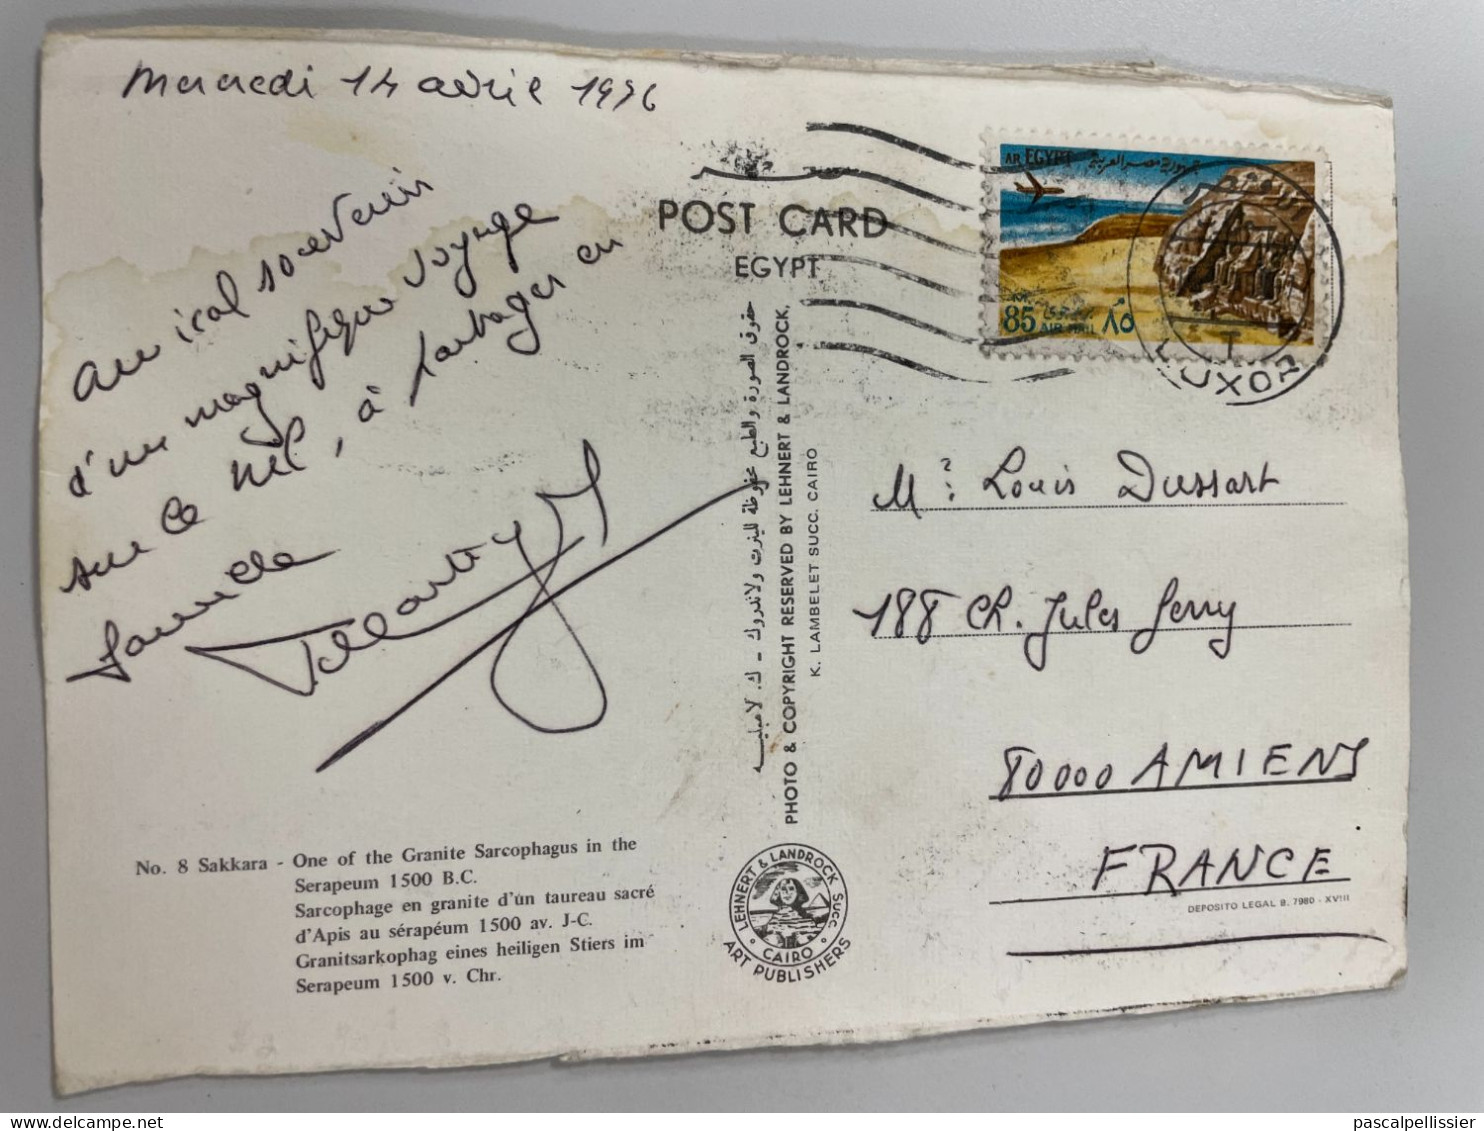 Mercredi 14 avril 1976
amical souvenir
d'un magnifique voyage
sur le Nil, à partager en
famille
POST CARD
EGYPT
AR EGYPT جمهورية مصر العربية
85 AIR MAIL ٨٥
LUXOR
حقوق الصورة والطبع محفوظة للينرت ولاندروك - ك. لامبليه
PHOTO & COPYRIGHT RESERVED BY LEHNERT & LANDROCK,
K. LAMBELET SUCC. CAIRO
Mr: Louis Dussart
188 Ch. Jules Ferry
80000 AMIENS
FRANCE
DEPOSITO LEGAL B. 7980 - XVIII
No. 8 Sakkara - One of the Granite Sarcophagus in the
Serapeum 1500 B.C.
Sarcophage en granite d'ùn taureau sacré
d'Apis au sérapéum 1500 av. J-C.
Granitsarkophag eines heiligen Stiers im
Serapeum 1500 v. Chr.
LEHNERT & LANDROCK SUCC.
CAIRO
ART PUBLISHERS
pascalpellissier